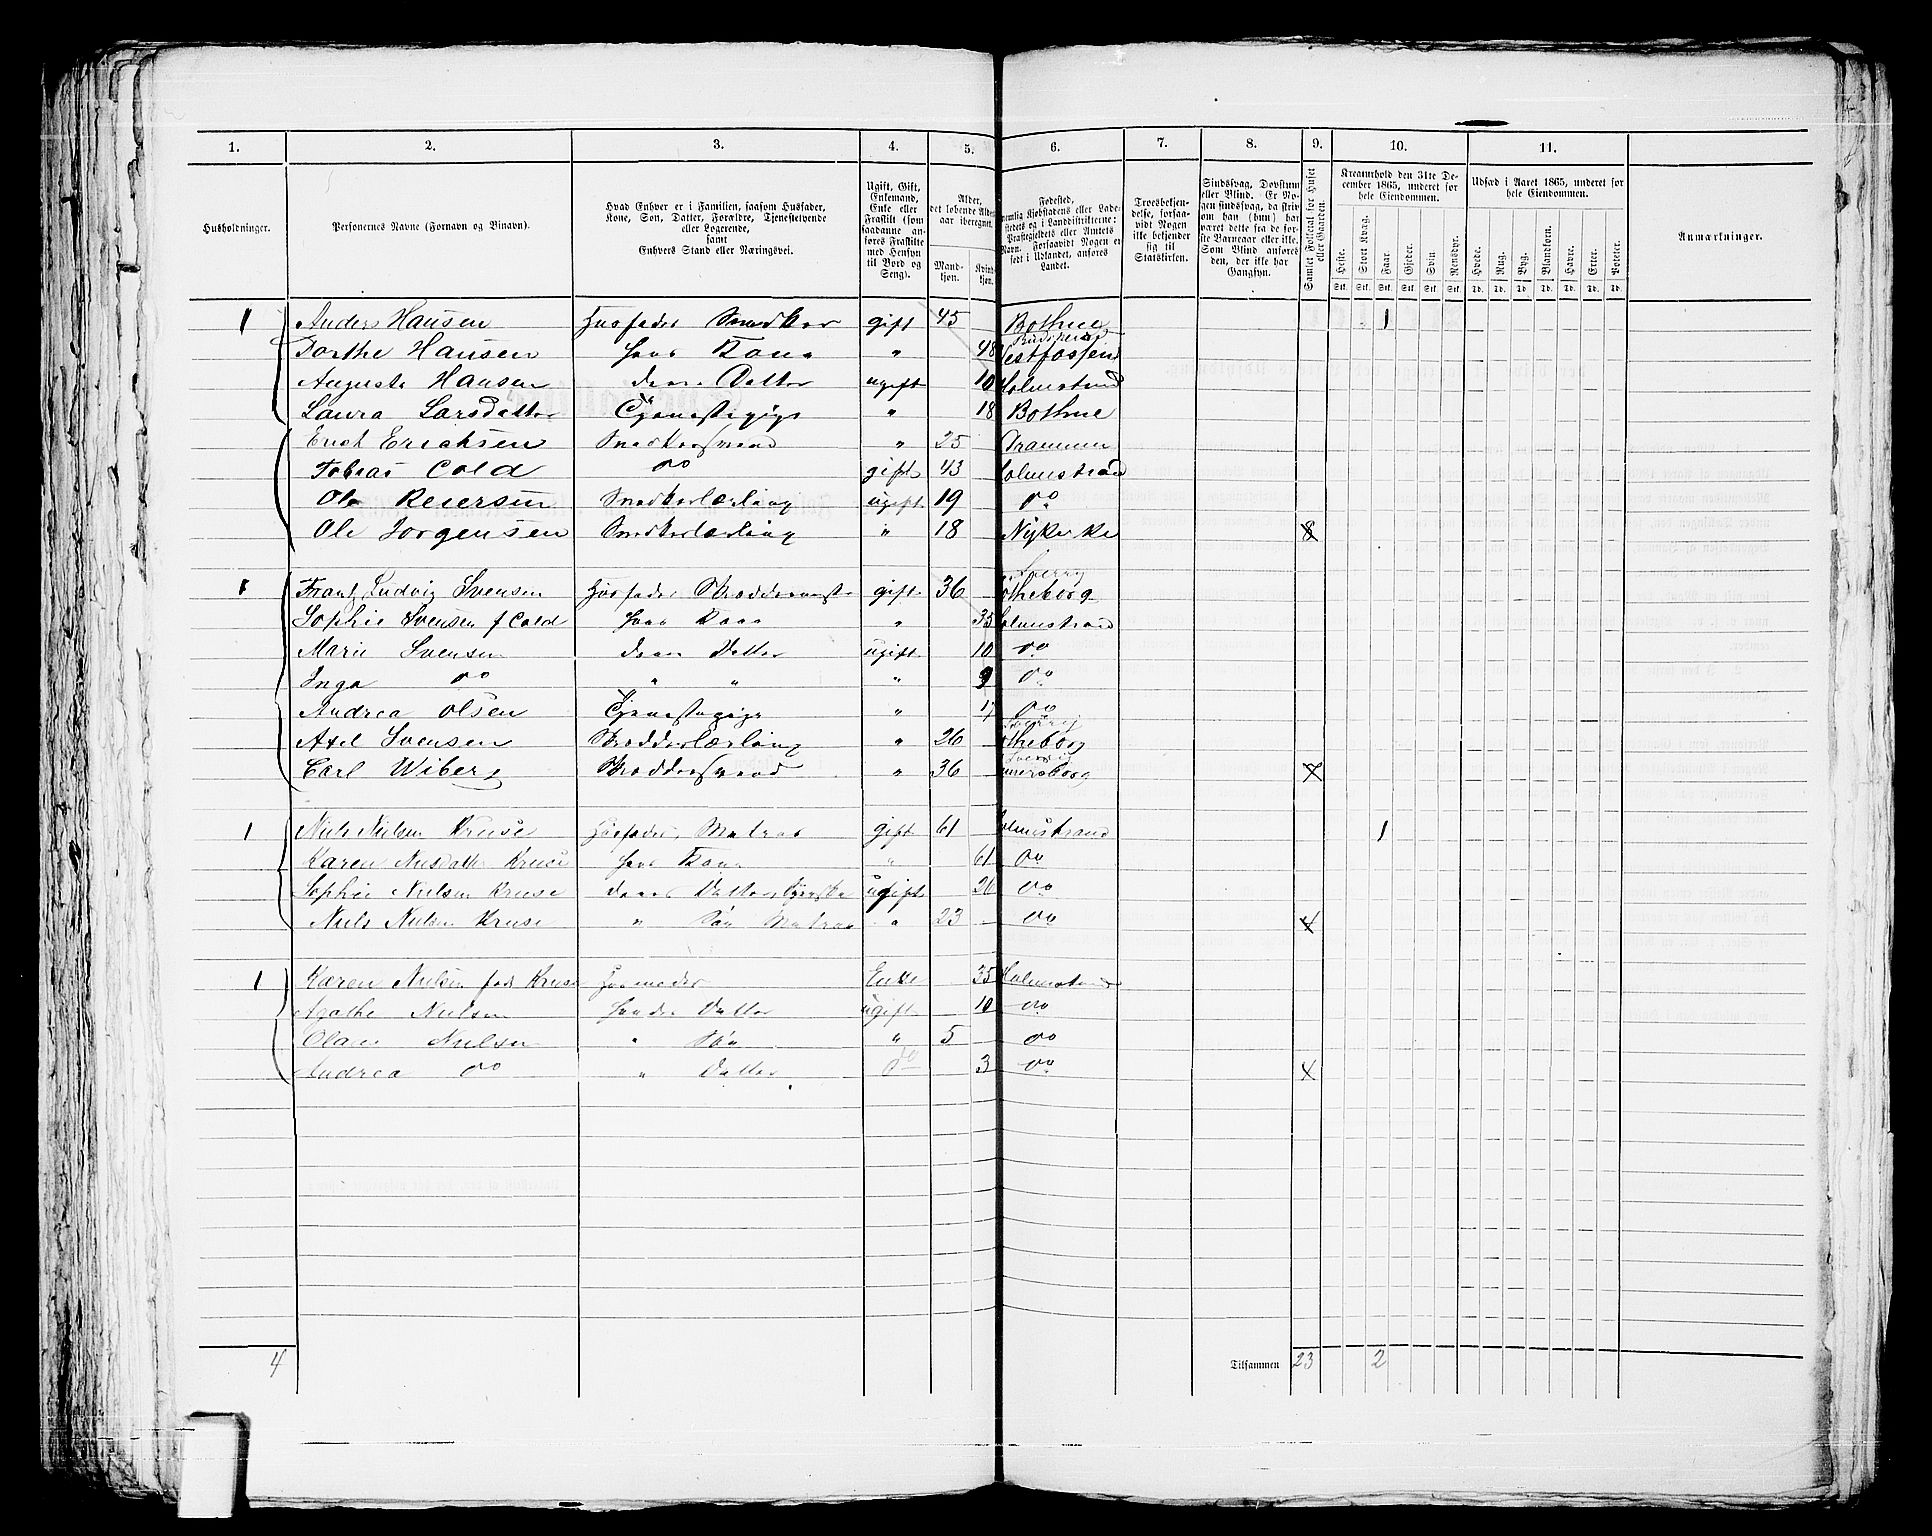 1. 2. 3. 4. 5. 6. 7. 8. 9. 10. 11.
Husholdninger.
Personernes Navne (Fornavn og Binavn).
Hvad Enhver er i Familien, saasom Husfader,
Kone, Søn, Datter, Forældre, Tjenestetyende
eller Logerende,
samt
Enhvers Stand eller Næringsvei.
Ugift, Gift,
Enkemand,
Enke eller
Fraskilt (som
saadanne an-
føres Fraskilte
med Hensyn
til Bord og
Seng).
Alder,
det løbende Alders-
aar iberegnet.
Mand-
kjøn.
Kvind-
kjøn.
Fødested,
nemlig Kjøbstadens eller Lade-
stedets og i Landdistrikterne:
Præstegjeldets eller Amtets
Navn. Forsaavidt Nogen er
født i Udlandet, anføres
Landet.
Troesbekjen-
delse, forsaa-
vidt Nogen
ikke bekjender
sig til
Statskirken.
Sindssvag, Døvstum
eller Blind. Er No-
gen sindssvag, da skriv
om han (hun) har
været dette fra de før-
ste Barneaar eller ikke.
Som Blind anføres
den, der ikke har
Gangsyn.
Samlet Folketal for Huset
eller Gaarden.
Kreaturhold den 31te De-
cember 1865, underet for
hele Eiendommen.
Heste. Stort Kvæg. Faar. Gjeder. Svin Rensdyr.
Stk. Stk. Stk. Stk. Stk. Stk.
Udsæd i Aaret 1865, underet for
hele Eiendommen.
Hvede. Rug. Byg. Blandkorn. Havre. Erter. Poteter.
Td. Td. Td. Td. Td. Td. Td.
Anmærkninger.
1 Anders Hansen Husfader Snedker gift 45 Bothne 1
Dorthe Hansen hans Kone " 48 Vestfossen
Augusta Hansen deres Datter ugift 10 Holmstrand
Laura Larsdatter Tjenestepige " 18 Bothne
Erich Erichsen Snedkersvend " 25 Drammen
Tobias Cold do gift 43 Holmstrand
Ole Reiersen Snedkerlærling ugift 19 do
Ole Jorgensen Snedkerlærling " 18 Nykirke 8
1 Frantz Ludvig Svensen Husfader gift 36 Gotheborg
Sophie Svensen f Cold hans Kone " 35 Holmstrand
Marie Svensen deres Datter ugift 10 do
Inga do " " " 9 do
Andrea Olsen Tjenestepige " 17 do
Axel Svensen Skrædderlærling " 26 Gotheborg
Carl Wiberg Skræddersvend " 36 7
1 Niels Nielsen Kruse Husfader, Matros gift 61 Holmstrand 1
Karen Kruse hans Kone " 61 do
Sophie Nielsen Kruse deres Datter ugift 26 do
Niels Nielsen Kruse " Søn Matros " 23 do 4
1 Karen Nielsen fød Kruse Husmoder Enke 35 Holmstrand
Nielsen hendes Datter ugift 10 do
Nielsen " Søn " 5 do
Andrea do " Datter do 3 do 4
4 Tilsammen 23 2